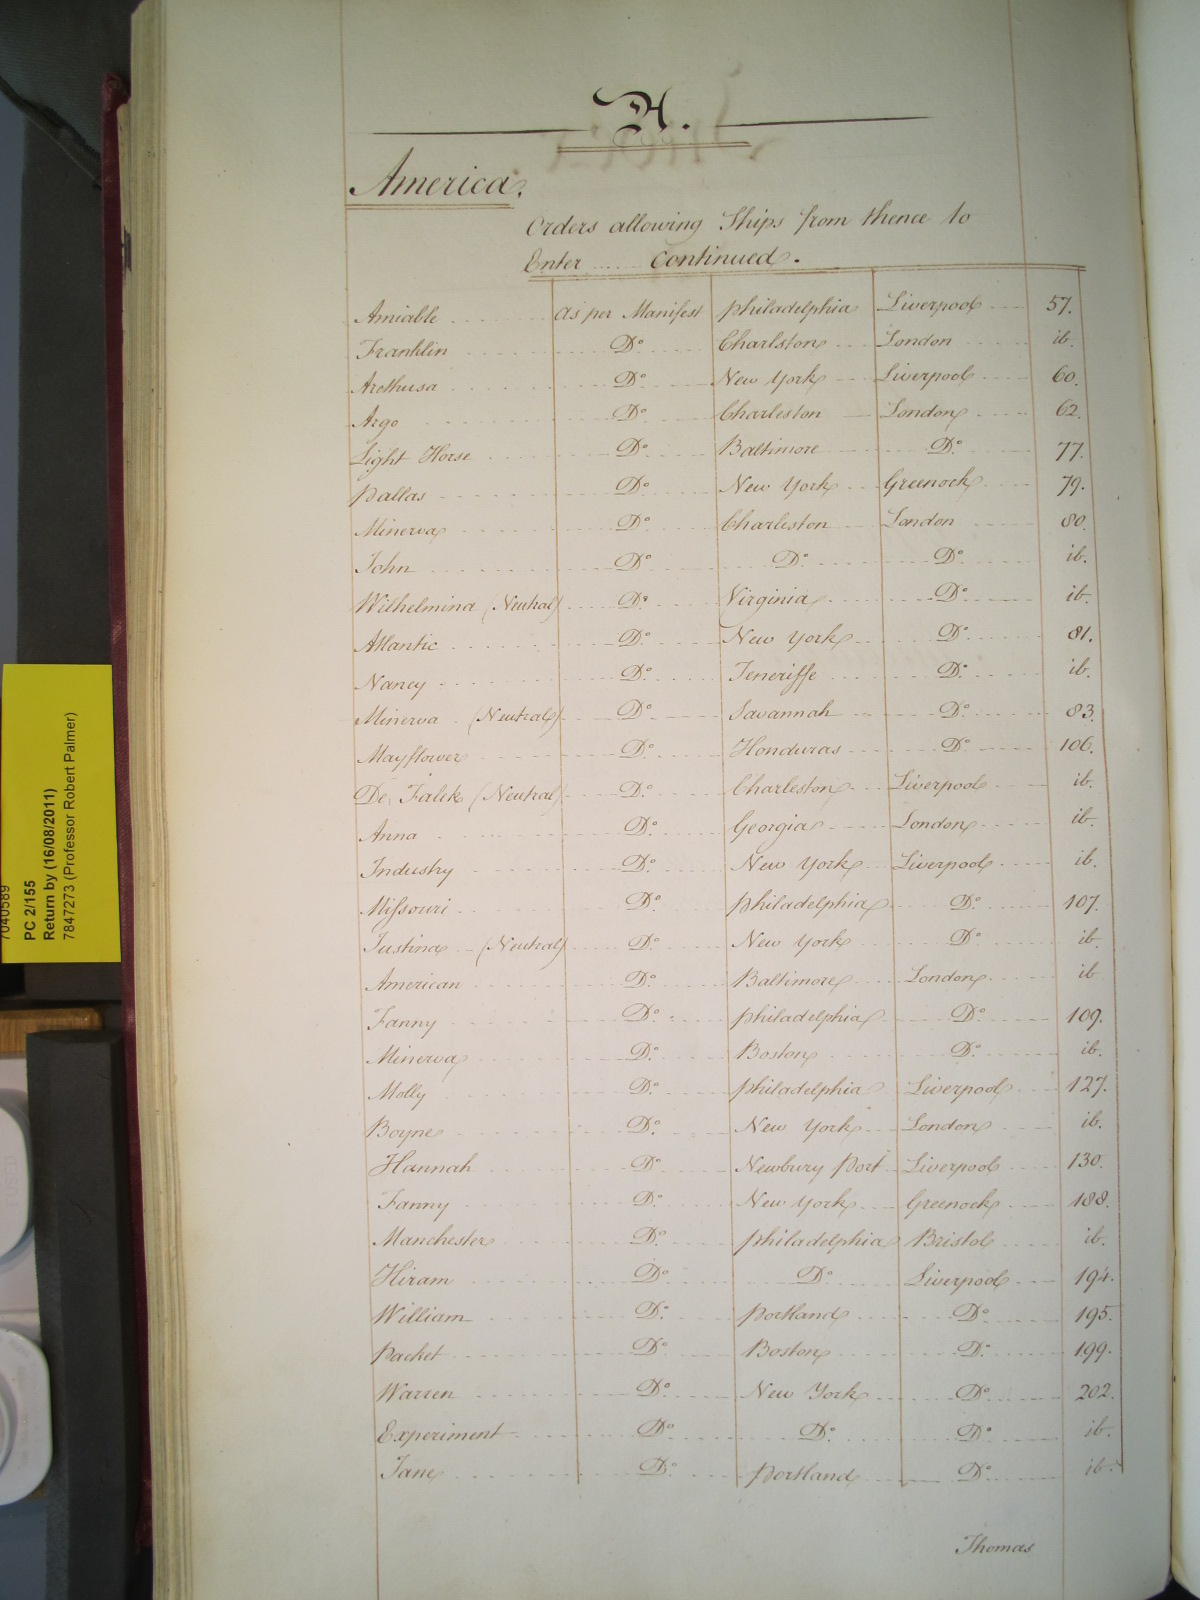 A.
America.
Orders allowing Ships from thence to
Enter ..... Continued.
Amiable as per Manifest Philadelphia Liverpool 57.
Franklin Do. Charlston London ib.
Arethusa Do. New York Liverpool 60.
Argo Do. Charleston London 62.
Light Horse Do. Baltimore Do. 77.
Pallas Do. New York Greenock 79.
Minerva Do. Charleston London 80.
John Do. Do. Do. ib.
Wilhelmina (Neutral) Do. Virginia Do. ib.
Atlantic Do. New York Do. 81.
Nancy Do. Teneriffe Do. ib.
Minerva (Neutral) Do. Savannah Do. 83.
Mayflower Do. Honduras Do. 106.
De Falck (Neutral) Do. Charleston Liverpool ib.
Anna Do. Georgia London ib.
Industry Do. New York Liverpool ib.
Missouri Do. Philadelphia Do. 107.
Justina (Neutral) Do. New York Do. ib.
American Do. Baltimore London ib
Fanny Do. Philadelphia Do. 109.
Minerva Do. Boston Do. ib.
Molly Do. Philadelphia Liverpool 127.
Boyne Do. New York London ib.
Hannah Do. Newbury Port Liverpool 130.
Fanny Do. New York Greenock 188.
Manchester Do. Philadelphia Bristol ib.
Hiram Do. Do. Liverpool 194.
William Do. Portland Do. 195.
Packet Do. Boston Do. 199.
Warren Do. New York Do. 202.
Experiment Do. Do. Do. ib.
Jane Do. Portland Do. ib.
Thomas
7040589
PC 2/155
Return by (16/08/2011)
7847273 (Professor Robert Palmer)